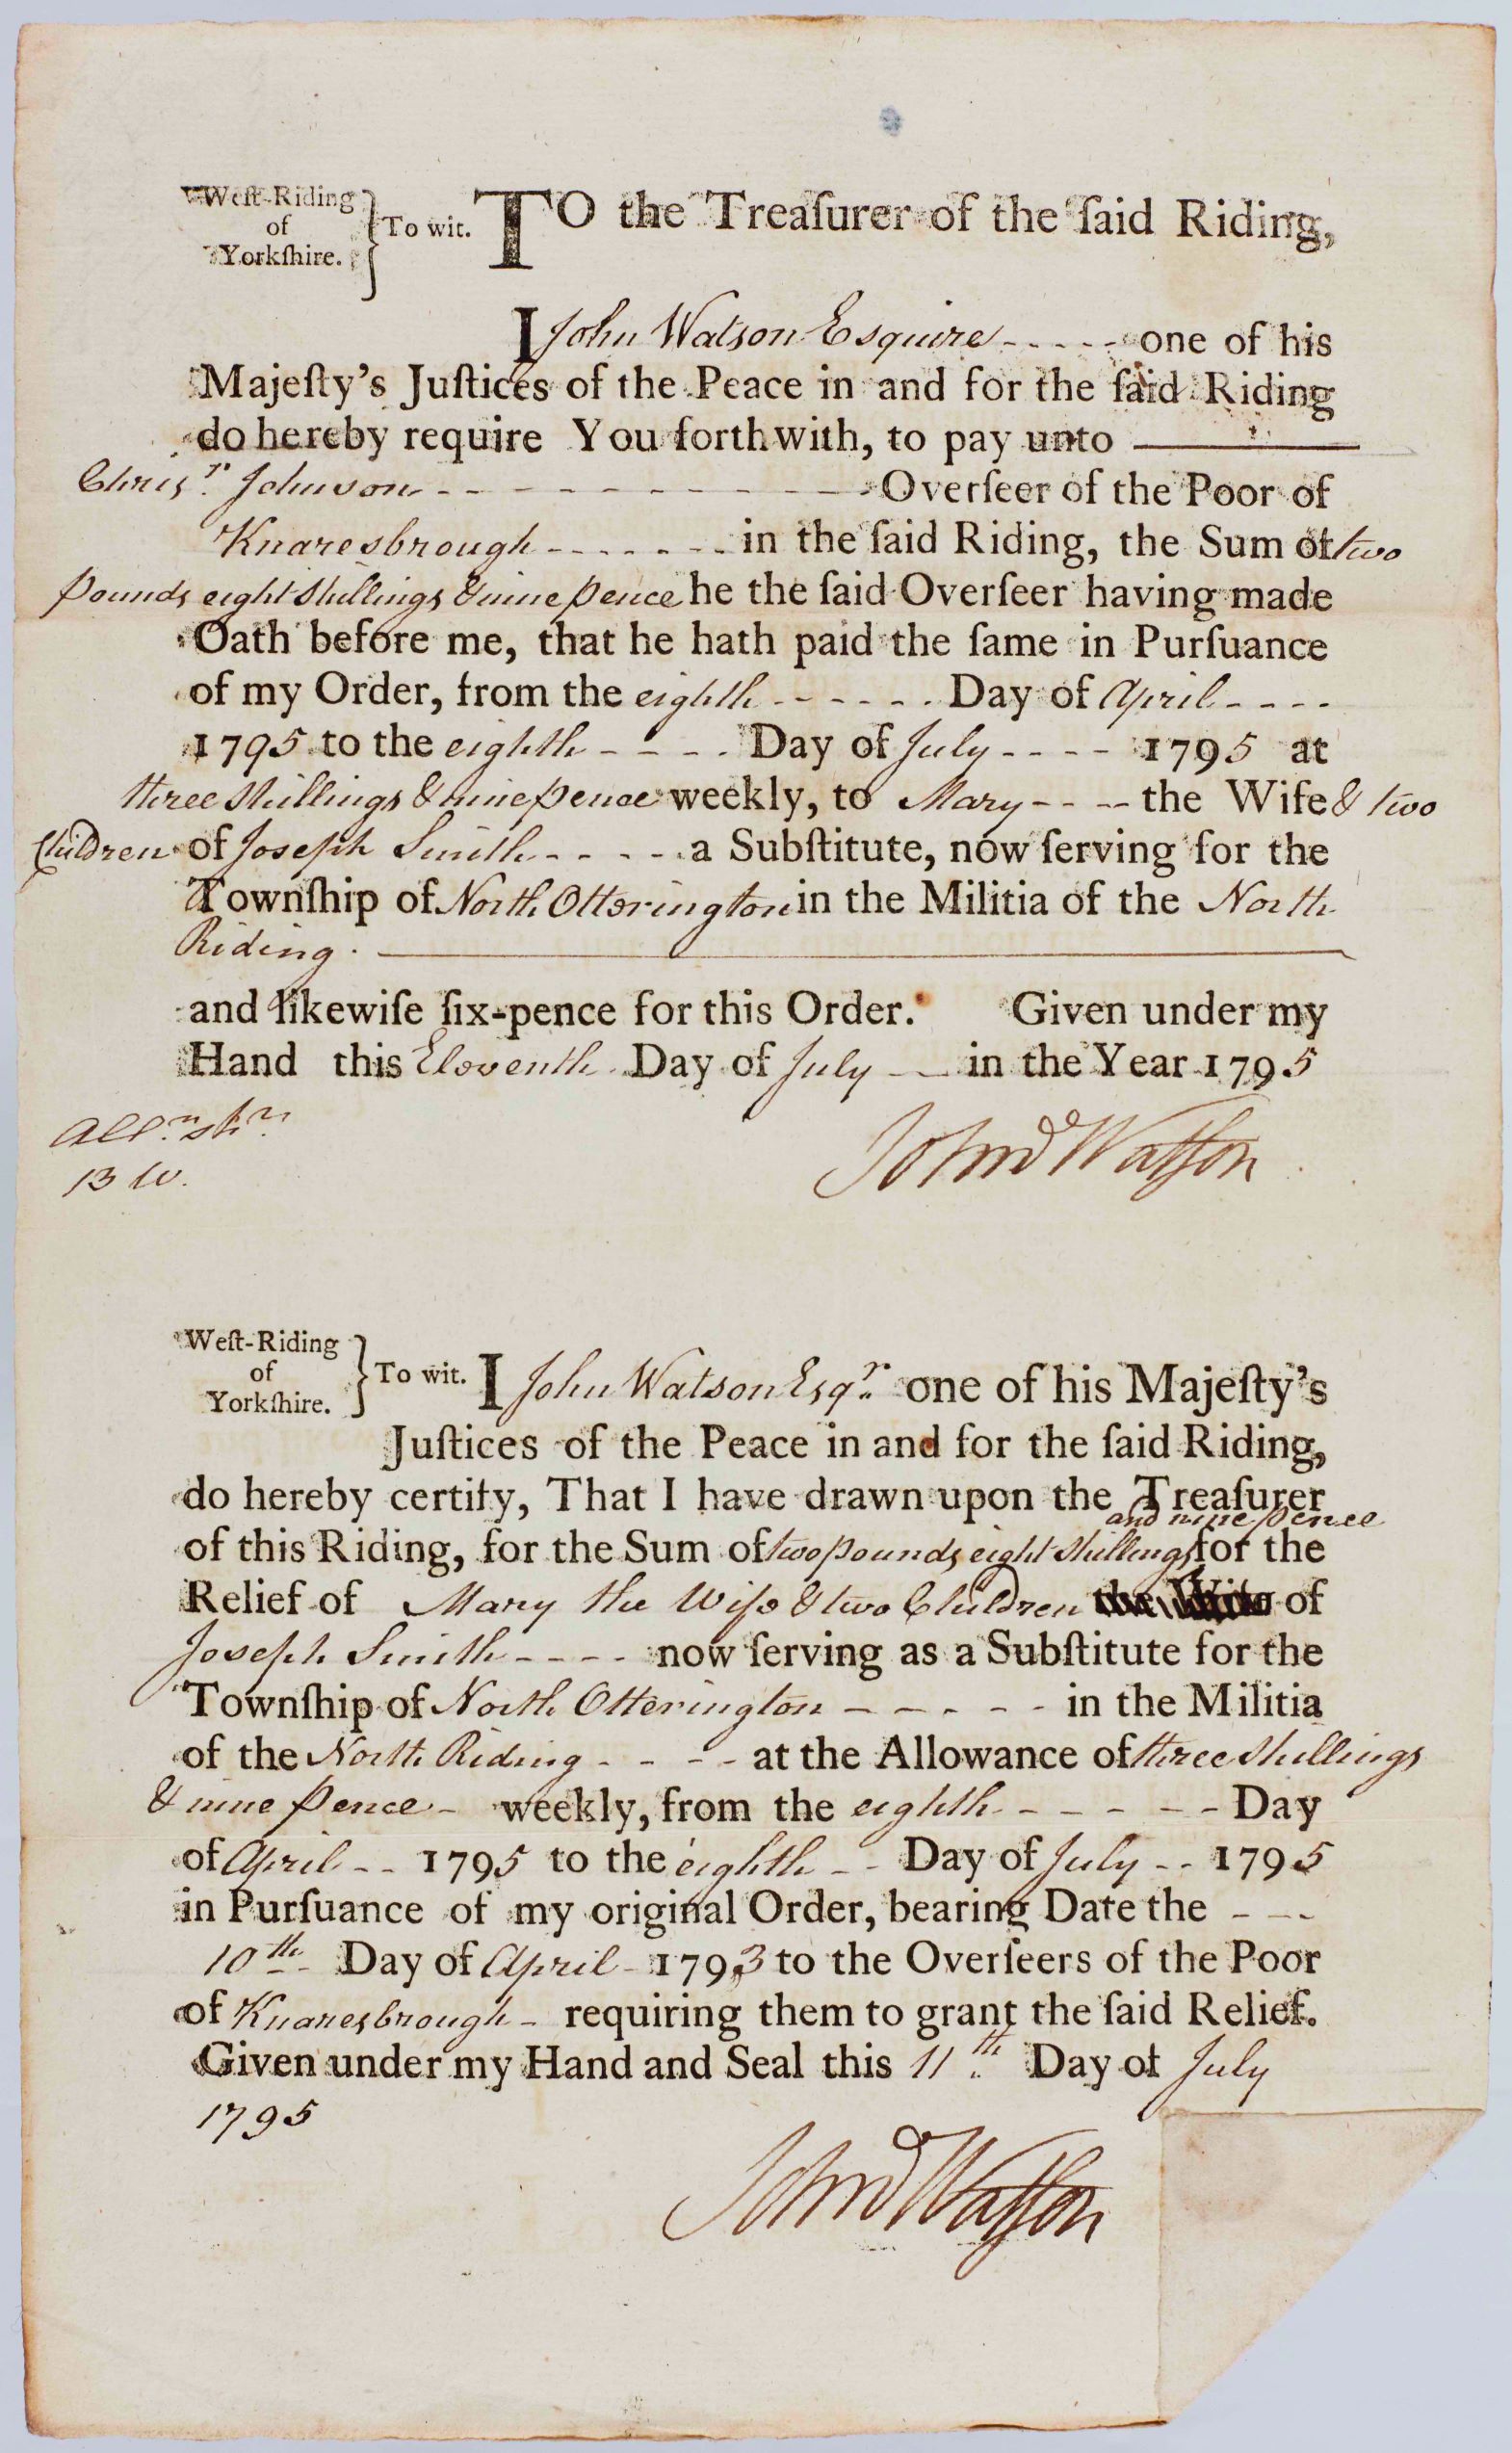 Weſt-Riding
of
Yorkſhire.
To wit.
TO the Treaſurer of the ſaid Riding,
I John Watson Esquire - - - - - one of his
Majeſty's Juſtices of the Peace in and for the ſaid Riding
do hereby require You forthwith, to pay unto
Chrisr. Johnson - - - - - - - - - - Overſeer of the Poor of
Knaresbrough - - - - - - - in the ſaid Riding, the Sum of two
pounds eight Shillings & nine pence he the ſaid Overſeer having made
Oath before me, that he hath paid the ſame in Purſuance
of my Order, from the eighth - - - - - - Day of April - - - -
1795 to the eighth - - - - Day of July - - - - 1795 at
three Shillings & nine pence weekly, to Mary - - - - the Wife & two
Children of Joseph Smith - - - - - a Subſtitute, now ſerving for the
Townſhip of North Otterington in the Militia of the North
Riding.
and likewiſe ſix-pence for this Order. Given under my
Hand this Eleventh Day of July — in the Year 1795
13 W.
John Watſon
Weſt-Riding
of
Yorkſhire.
To wit.
I John Watson Esqr. one of his Majeſty's
Juſtices of the Peace in and for the ſaid Riding,
do hereby certify, That I have drawn upon the Treaſurer
and nine pence
of this Riding, for the Sum of two pounds eight Shillings for the
Relief of Mary the Wife & two Children the Wife of
Joseph Smith - - - - now ſerving as a Subſtitute for the
Townſhip of North Otterington - - - - - in the Militia
of the North Riding - - - - at the Allowance of three Shillings
& nine Pence - weekly, from the eighth - - - - - - Day
of April - - 1795 to the eighth - - Day of July - - 1795
in Purſuance of my original Order, bearing Date the - - -
10th. Day of April - 1793 to the Overſeers of the Poor
of Knaresbrough - requiring them to grant the ſaid Relief.
Given under my Hand and Seal this 11th. Day of July
1795
John Watſon